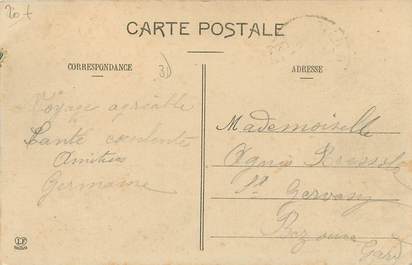 20 f
CARTE POSTALE
CORRESPONDANCE
3D
ADRESSE
Voyage agréable
Santé excellente
Amitiés
Germaine
Mademoiselle
St Gervasy
Bezouce
Gard